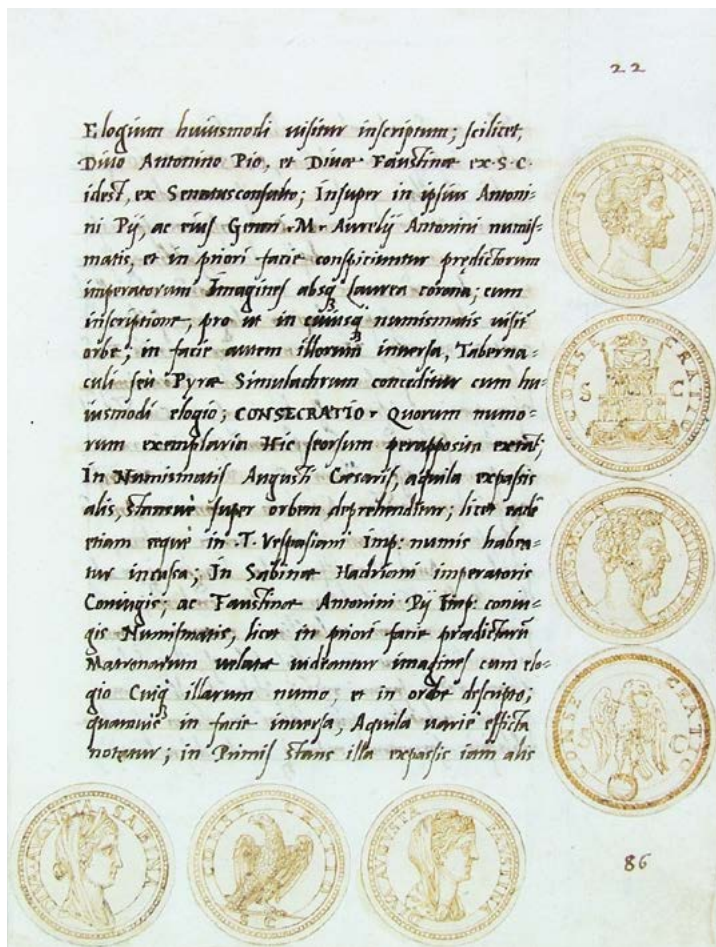 22
Elogium huiusmodi visitur inscriptum; scilicet,
Divo Antonino Pio, et Divæ Faustinæ ex·S·C·
idest, ex Senatusconsulto; Insuper in ipsius Antoni=
ni Pij, ac eius Generi·M·Aurelij Antonini numis=
matis, et in priori facie conspiciuntur prędictorum
imperatorum Imagines absq Laurea corona; cum
inscriptione, pro ut in cuiusq numismatis visit
orbe; in facie autem illorum inversa, Taberna=
culi seu Pyræ Simulachrum conceditur cum hu=
iusmodi elogio; CONSECRATIO· Quorum numo=
rum exemplaria Hic seorsum perapposita extãt;
In Numismatis Augusti Cæsaris, aquila expassis
alis, stansuè super orbem deprehenditur; licet eadẽ
etiam eque in ·T·Vespasiani Imp: numis habea=
tur incussa; In Sabinæ Hadriani imperatoris
Coniugis; ac Faustinæ Antonini Pij Imp: coniu=
gis Numismatis, licet in priori facie prædictarũ
Matronarum velatæ videantur imagines cum elo=
gio Cuiq illarum numo, et in orbe descripto;
quamvis in facie inversa, Aquila varie efficta
notetur; in Primis stans illa expassis iam alis
DIVUS ANTONINUS
CONSECRATIO
S C
CONSECRATIO
S C
AUGUSTA SABINA
CONSECRATIO
AUGUSTA FAUSTINA
86